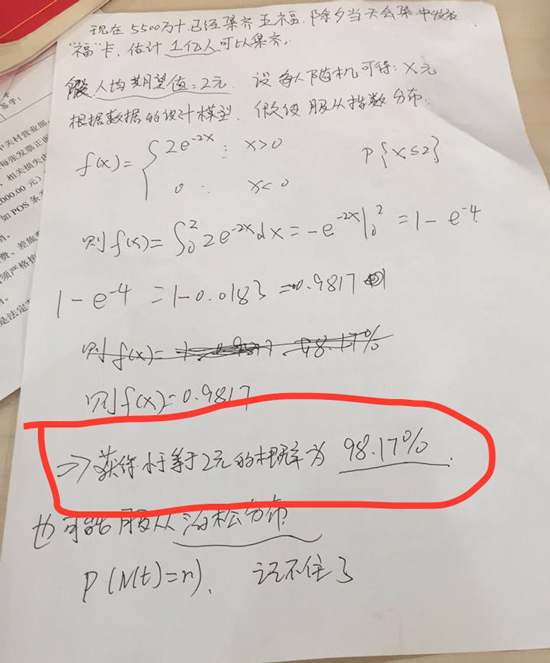 现在5500万个已经集齐五福，除夕当天会集中收
"福"卡，估计1亿人可以集齐，
假人均期望值：2元 设每人随机可得：X元
根据数据的设计模型，假设服从指数分布
f(x)={ 2e^-2x : x>0 P{x≤2}
0 : x<0
则f(x)=∫₀² 2e^-2x dx = -e^-2x|₀² = 1-e^-4
1-e^-4 =1-0.0183=0.9817
则f(x)= 98.17%
则f(x)=0.9817
=>获得小于等于2元的概率为 98.17%.
也可能服从泊松分布
P(N(t)=n), 记不住了
中关村营业部
000.00元）
如POS